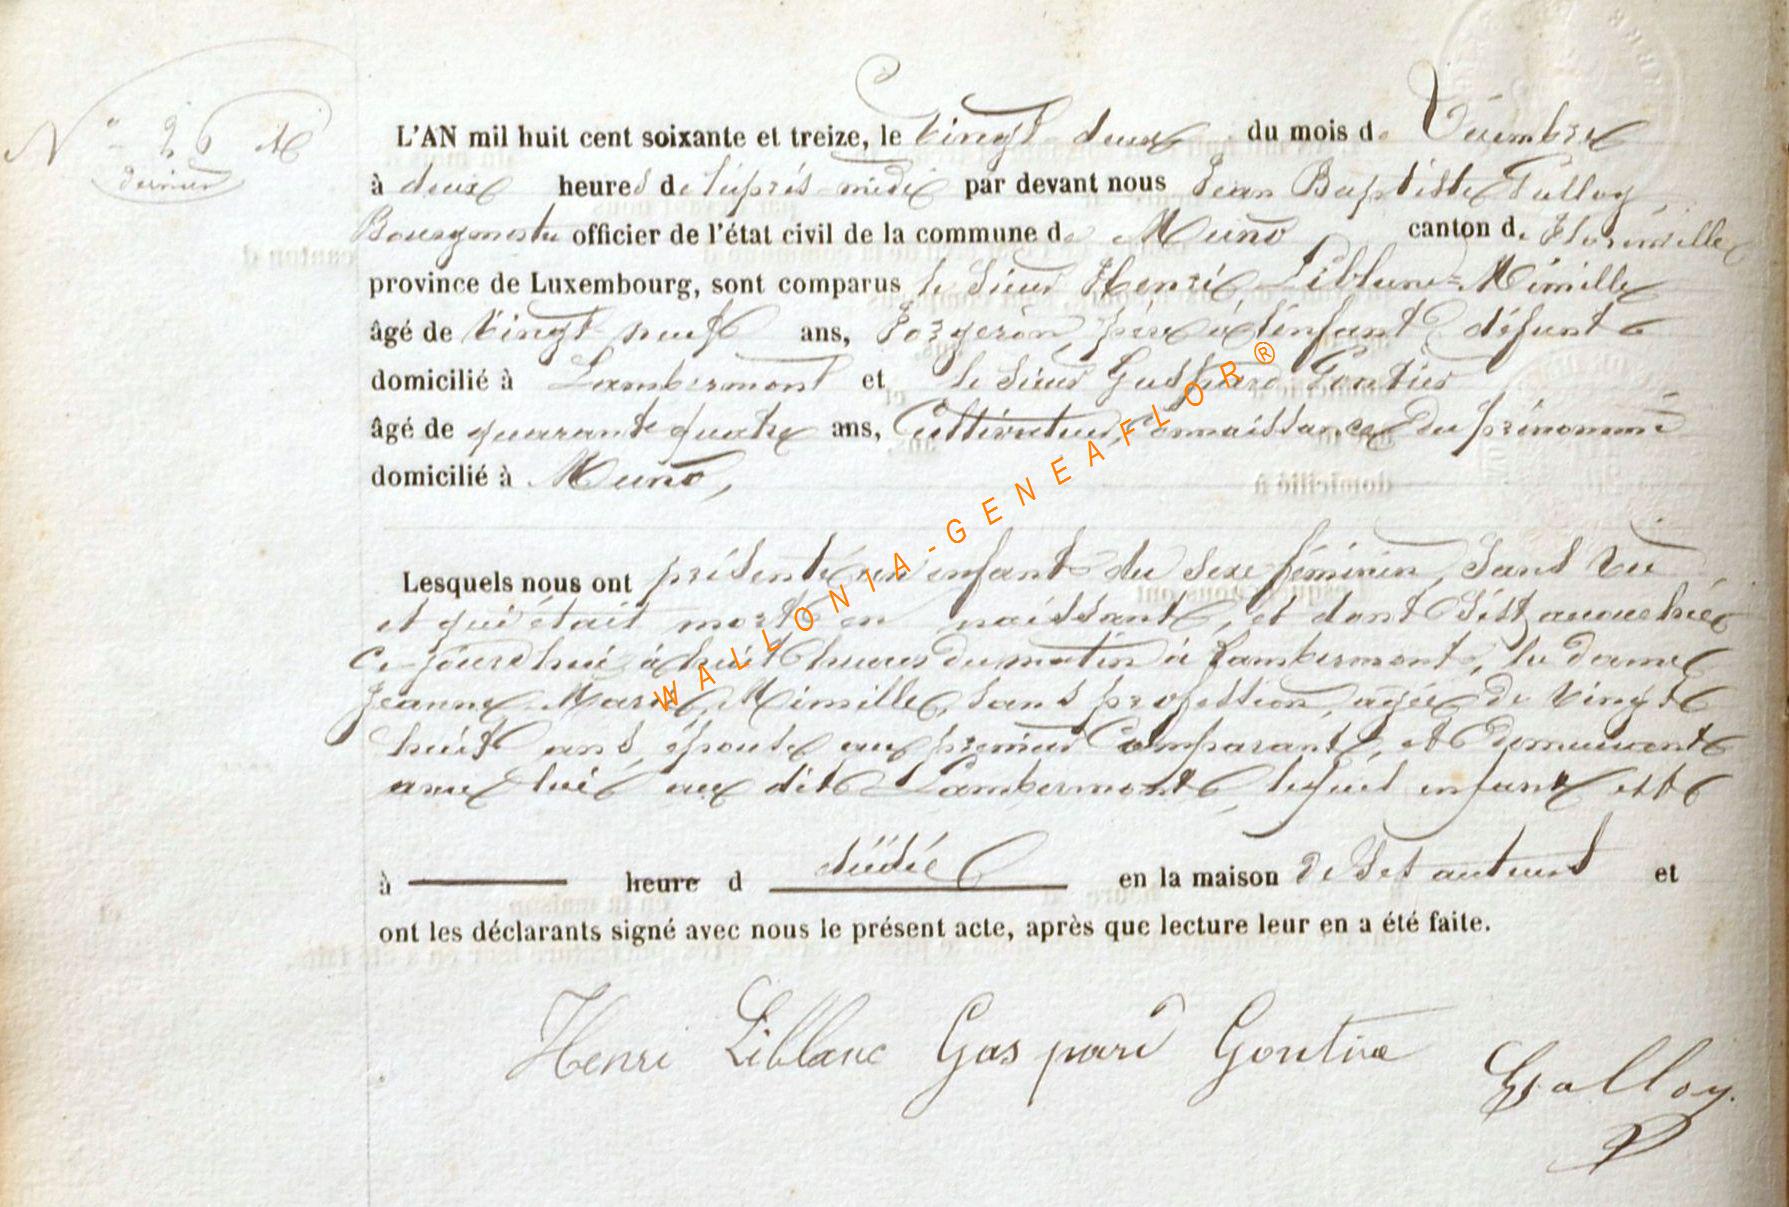 N° 26 M
dernier
L'AN mil huit cent soixante et treize, le Vingt deux du mois de Décembre
à deux heures de l'après-midi par devant nous Jean Baptiste
Bourgmestre officier de l'état civil de la commune de Muno canton de Florenville
province de Luxembourg, sont comparus le sieur Henri Liblanc-Mimille
âgé de Vingt neuf ans, Forgeron, père à l'enfant défunt
domicilié à Lambermont et le sieur Gaspard Gontier
âgé de quarante quatre ans, Cultivateur, Connaissance du prénommé
domicilié à Muno,
Lesquels nous ont présenté un enfant du sexe féminin, sans vie
et qui était mort en naissant, et dont s'est accouchée
ce jourd'hui à huit heures du matin à Lambermont, la dame
Jeanne Marie Mimille, sans profession, agée de vingt
huit ans, épouse au premier Comparant, et demeurant
avec lui au dit Lambermont, lequel enfant est
à heure d décédé en la maison de ses auteurs et
ont les déclarants signé avec nous le présent acte, après que lecture leur en a été faite.
Henri Liblanc Gaspard Gontier
WALLONIA-GENEAFLOR®